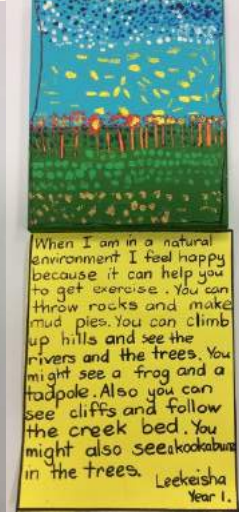 When I am in a natural
environment I feel happy
because it can help you
to get exercise. You can
throw rocks and make
mud pies. You can climb
up hills and see the
rivers and the trees. You
might see a frog and a
tadpole. Also you can
see cliffs and follow
the creek bed. You
might also see a kookabura
in the trees.
Leekeisha
Year 1.